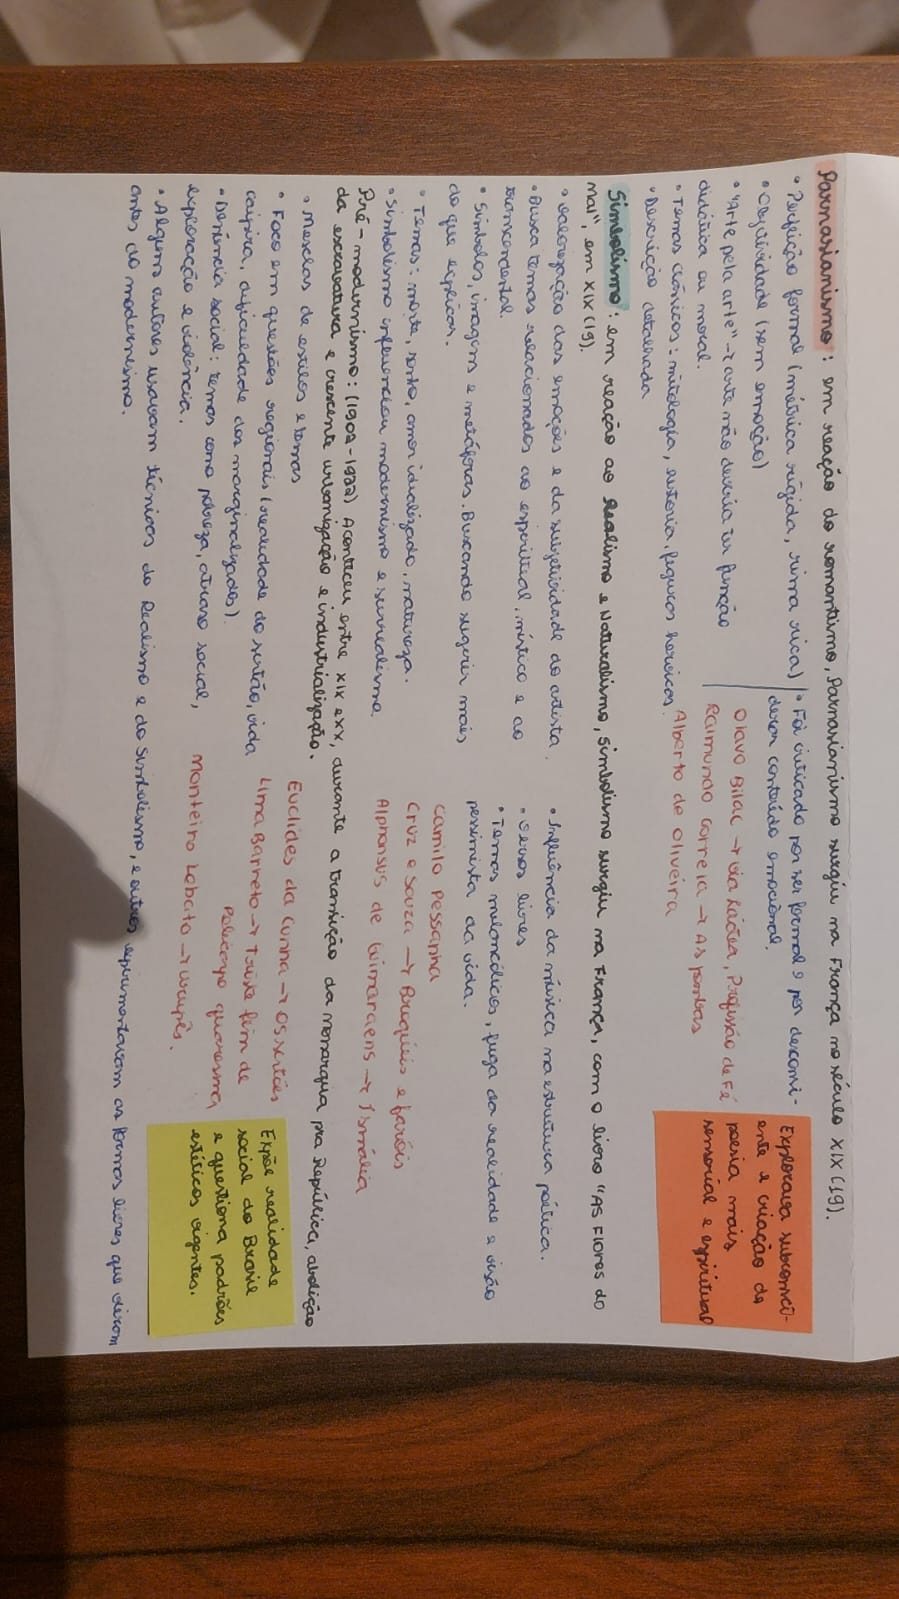 Parnasianismo: em reação do romantismo, Parnasianismo surgiu na França no século XIX (19).
• Perfeição formal (métrica rígida, rima rica)
• Objetividade (sem emoção)
• "Arte pela arte" → arte não deveria ter função
didática ou moral.
• Temas clássicos: mitologia, história, figuras heroicas.
• Descrição detalhada
• Foi criticado por ser formal e por desconsi-
derar conteúdo emocional.
Olavo Bilac → via Láctea, Profissão de Fé
Raimundo Correia → As pombas
Alberto de Oliveira
Explorava subconsci-
ente e criação de
poesia mais
sensorial e espiritual
Simbolismo: em reação ao Realismo e Naturalismo, simbolismo surgiu na França, com o livro "AS Flores do
mal", em XIX (19).
• valorização das emoções e da subjetividade do artista.
• Busca temas relacionados ao espiritual, místico e ao
transcendental.
• Símbolos, imagens e metáforas. Buscando sugerir mais
do que explicar.
• Temas: morte, sonho, amor idealizado, natureza.
• Simbolismo influenciou modernismo e surrealismo.
• Influência da música na estrutura poética.
• versos livres
• Temas melancólicos, fuga da realidade e visão
pessimista da vida.
Camilo Pessanha
Cruz e Souza → Broquéis e faróis
Alphonsus de Guimaraens → Ismália
Pré-modernismo: (1902-1922) Aconteceu entre XIX e XX, durante a transição da monarquia pra República, abolição
da escravatura e crescente urbanização e industrialização.
• Mesclas de estilos e temas
• Foco em questões regionais (realidade do sertão, vida
caipira, dificuldade dos marginalizados)
• Denúncia social: temas como pobreza, atraso social,
exploração e violência.
• Alguns autores usavam técnicas do Realismo e do Simbolismo, e outros experimentavam as formas livres que viram
antes do modernismo.
Euclides da Cunha → Os sertões
Lima Barreto → Triste fim de
Policarpo quaresma
Monteiro Lobato → urupês.
Expõe realidade
social do Brasil
e questiona padrões
estéticos vigentes.